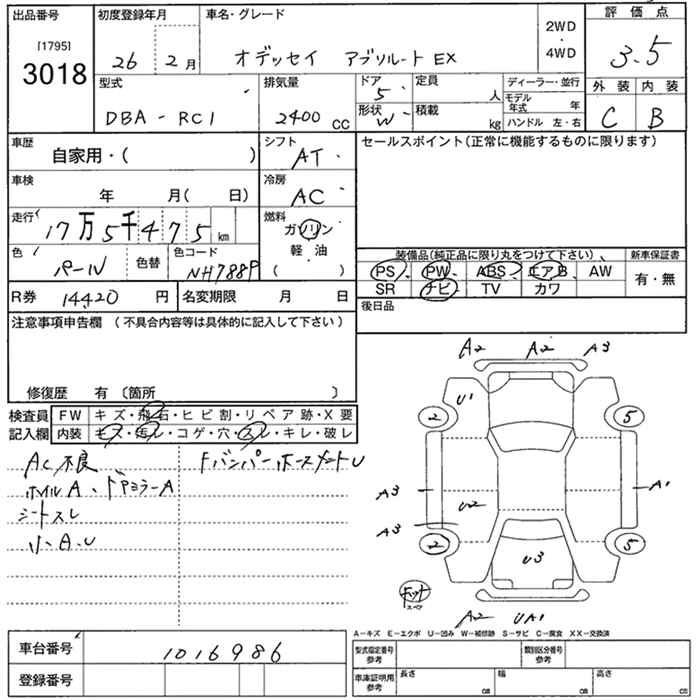 出品番号 初度登録年月 車名・グレード 評価点
[1795] 2WD
3018 26 2月 オデッセイ アブソルート EX 4WD 3.5
型式 排気量 ドア 5 定員 人 ディーラー・並行 外装 内装
DBA-RC1 2400 CC 形状 W 積載 kg モデル年式 年 ハンドル 左・右 C B
車歴 シフト セールスポイント(正常に機能するものに限ります)
自家用・( ) AT
車検 冷房
年 月( 日) AC
走行 燃料
17万5千475km ガソリン
色 色替 色コード 軽油 装備品(純品に限り丸をつけて下さい) 新車保証書
パール NH788P ( ) PS PW ABS エアB AW 有・無
R券 14420円 名変期限 月 日 SR ナビ TV カワ
注意事項申告欄(不具合内容等は具体的に記入して下さい) 後日品
修復歴 有〔箇所 〕
検査員 FW キズ・飛石・ヒビ割・リペア跡・X要
記入欄 内装 キズ・汚レ・コゲ・穴・スレ・キレ・破レ
AC不良 FバンパーホースメントU
ホイルA、ドアミラーA
シートスレ
小A.U
A2 A2 A3
U1
2 5
A3 A1
U2
A3
2 5
U3
スペア
A2 UA1
A-キズ E-エクボ U-凹み W-補修跡 S-サビ C-腐食 XX-交換済
車台番号 1016986 型式指定番号 参考 類別区分番号 参考
登録番号 車庫証明用 参考 長さ cm 幅 cm 高さ cm